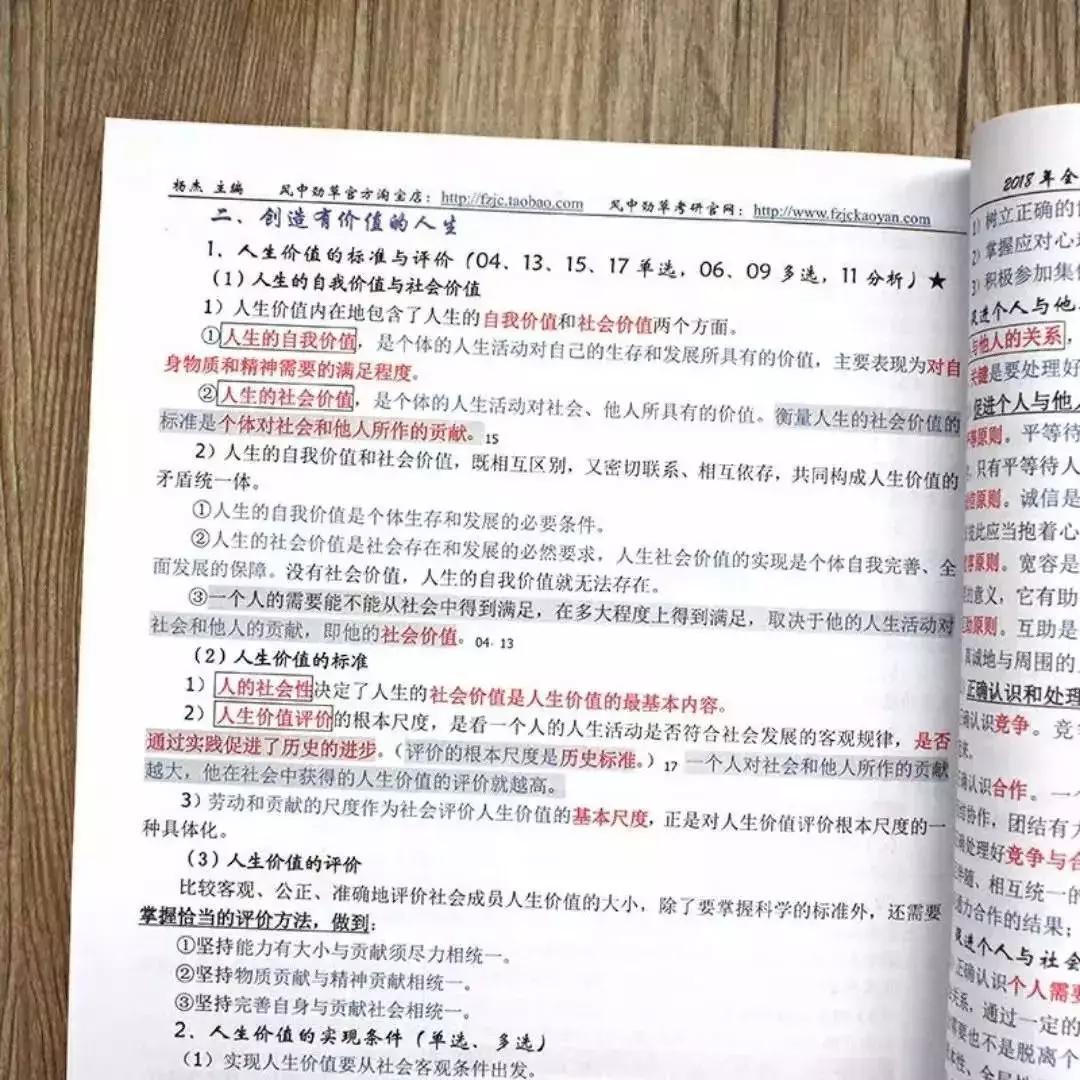 杨杰 主编 风中劲草官方淘宝店：http://fzjc.taobao.com 风中劲草考研官网：http://www.fzjckaoyan.com
二、创造有价值的人生
1．人生价值的标准与评价（04、13、15、17 单选，06、09 多选，11 分析）★
（1）人生的自我价值与社会价值
1）人生价值内在地包含了人生的自我价值和社会价值两个方面。
①人生的自我价值，是个体的人生活动对自己的生存和发展所具有的价值，主要表现为对自
身物质和精神需要的满足程度。
②人生的社会价值，是个体的人生活动对社会、他人所具有的价值。衡量人生的社会价值的
标准是个体对社会和他人所作的贡献。15
2）人生的自我价值和社会价值，既相互区别，又密切联系、相互依存，共同构成人生价值的
矛盾统一体。
①人生的自我价值是个体生存和发展的必要条件。
②人生的社会价值是社会存在和发展的必然要求，人生社会价值的实现是个体自我完善、全
面发展的保障。没有社会价值，人生的自我价值就无法存在。
③一个人的需要能不能从社会中得到满足，在多大程度上得到满足，取决于他的人生活动对
社会和他人的贡献，即他的社会价值。04、13
（2）人生价值的标准
1）人的社会性决定了人生的社会价值是人生价值的最基本内容。
2）人生价值评价的根本尺度，是看一个人的人生活动是否符合社会发展的客观规律，是否
通过实践促进了历史的进步。（评价的根本尺度是历史标准。）17 一个人对社会和他人所作的贡献
越大，他在社会中获得的人生价值的评价就越高。
3）劳动和贡献的尺度作为社会评价人生价值的基本尺度，正是对人生价值评价根本尺度的一
种具体化。
（3）人生价值的评价
比较客观、公正、准确地评价社会成员人生价值的大小，除了要掌握科学的标准外，还需要
掌握恰当的评价方法，做到：
①坚持能力有大小与贡献须尽力相统一。
②坚持物质贡献与精神贡献相统一。
③坚持完善自身与贡献社会相统一。
2．人生价值的实现条件（单选、多选）
（1）实现人生价值要从社会客观条件出发。
2018 年全
1）树立正确的
2）掌握应对心
3）积极参加集
进个人与他
与他人的关系，
关键是要处理好
促进个人与他人
原则。平等待
只有平等待人
原则。诚信是
彼此应当抱着心
原则。宽容是
的意义，它有助
原则。互助是
真诚地与周围的
正确认识和处理
正确认识竞争。竞
确认识合作。一
协作，团结有
处理好竞争与合
、相互统一的
力合作的结果；
进个人与社会
正确认识个人需要
关系，通过一定的
要也不是脱离个